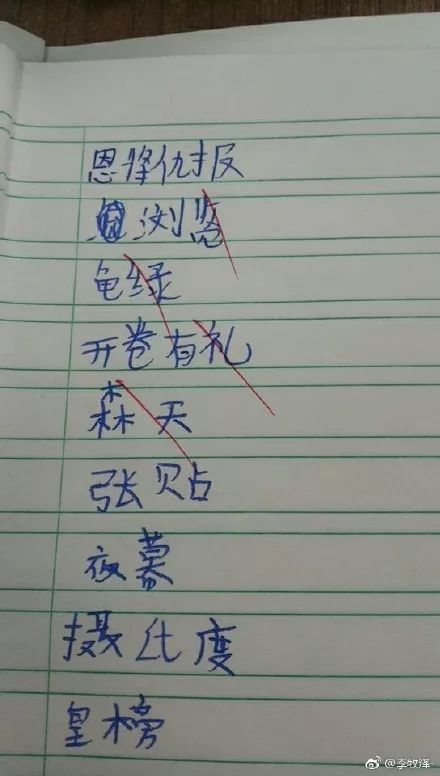 恩将仇报
浏览
龟绿
开卷有礼
森天
张贴
夜幕
摄比度
皇榜
@李牧泽